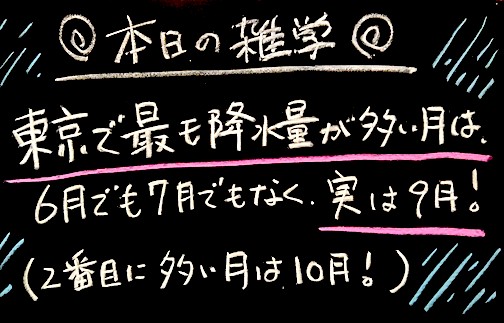 本日の雑学
東京で最も降水量が多い月は、
6月でも7月でもなく、実は9月!
(2番目に多い月は、10月!)